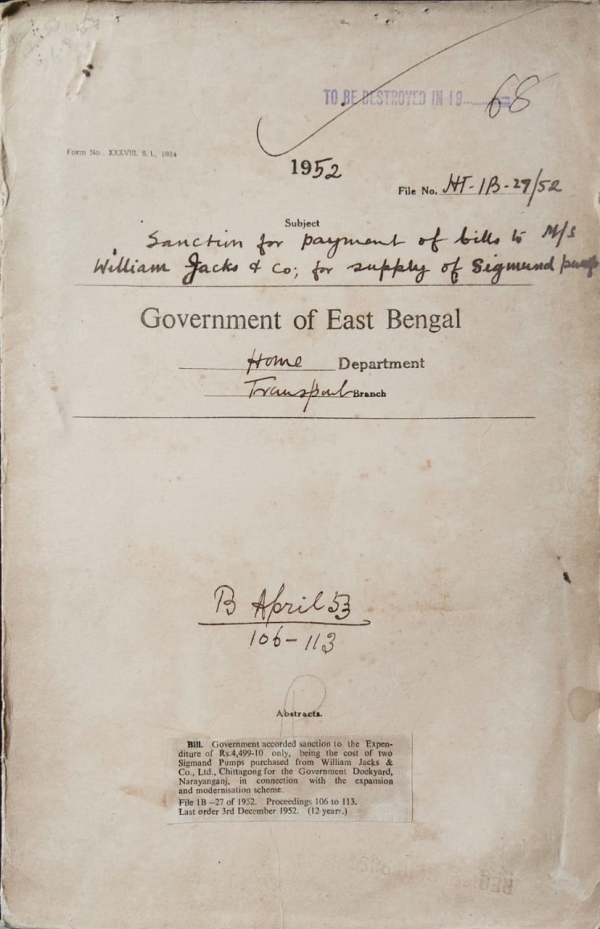 TO BE DESTROYED IN 19 68
Form No. XXXVIII. S. I., 1934
1952
File No. HT-1B-27/52
Subject
Sanction for payment of bills to M/S
William Jacks & Co; for supply of Sigmund pumps
Government of East Bengal
Home Department
Transport Branch
B April 53
106-113
Abstracts.
Bill. Government accorded sanction to the Expen-
diture of Rs.4,499-10 only, being the cost of two
Sigmand Pumps purchased from William Jacks &
Co., Ltd., Chittagong for the Government Dockyard,
Narayanganj, in connection with the expansion
and modernisation scheme.
File 1B-27 of 1952. Proceedings 106 to 113.
Last order 3rd December 1952. (12 years.)